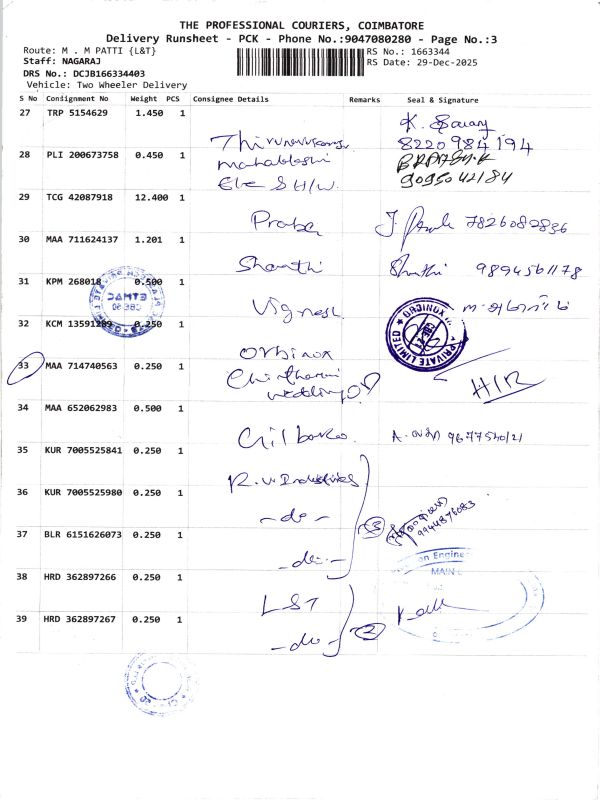 THE PROFESSIONAL COURIERS, COIMBATORE
Delivery Runsheet - PCK - Phone No.:9047080280 - Page No.:3
Route: M . M PATTI {L&T}
RS No.: 1663344
Staff: NAGARAJ
RS Date: 29-Dec-2025
DRS No.: DCJB166334403
Vehicle: Two Wheeler Delivery
S No Consignment No Weight PCS Consignee Details Remarks Seal & Signature
27 TRP 5154629 1.450 1
8220984194
28 PLI 200673758 0.450 1 mahabloshi
9095042184
29 TCG 42087918 12.400 1 Praba 7826082836
30 MAA 711624137 1.201 1 Shanthi Shanthi 9894561178
31 KPM 268018 0.500 1 Vignesh
32 KCM 13591209 0.250 1 Orbinox
ORBINOX
PRIVATE LIMITED
33 MAA 714740563 0.250 1
34 MAA 652062983 0.500 1 9677540121
35 KUR 7005525841 0.250 1 R.V Industries
36 KUR 7005525980 0.250 1 -do- 3
9944876083
37 BLR 6151626073 0.250 1 -do-
38 HRD 362897266 0.250 1 L&T
MAIN
39 HRD 362897267 0.250 1 -do- 2